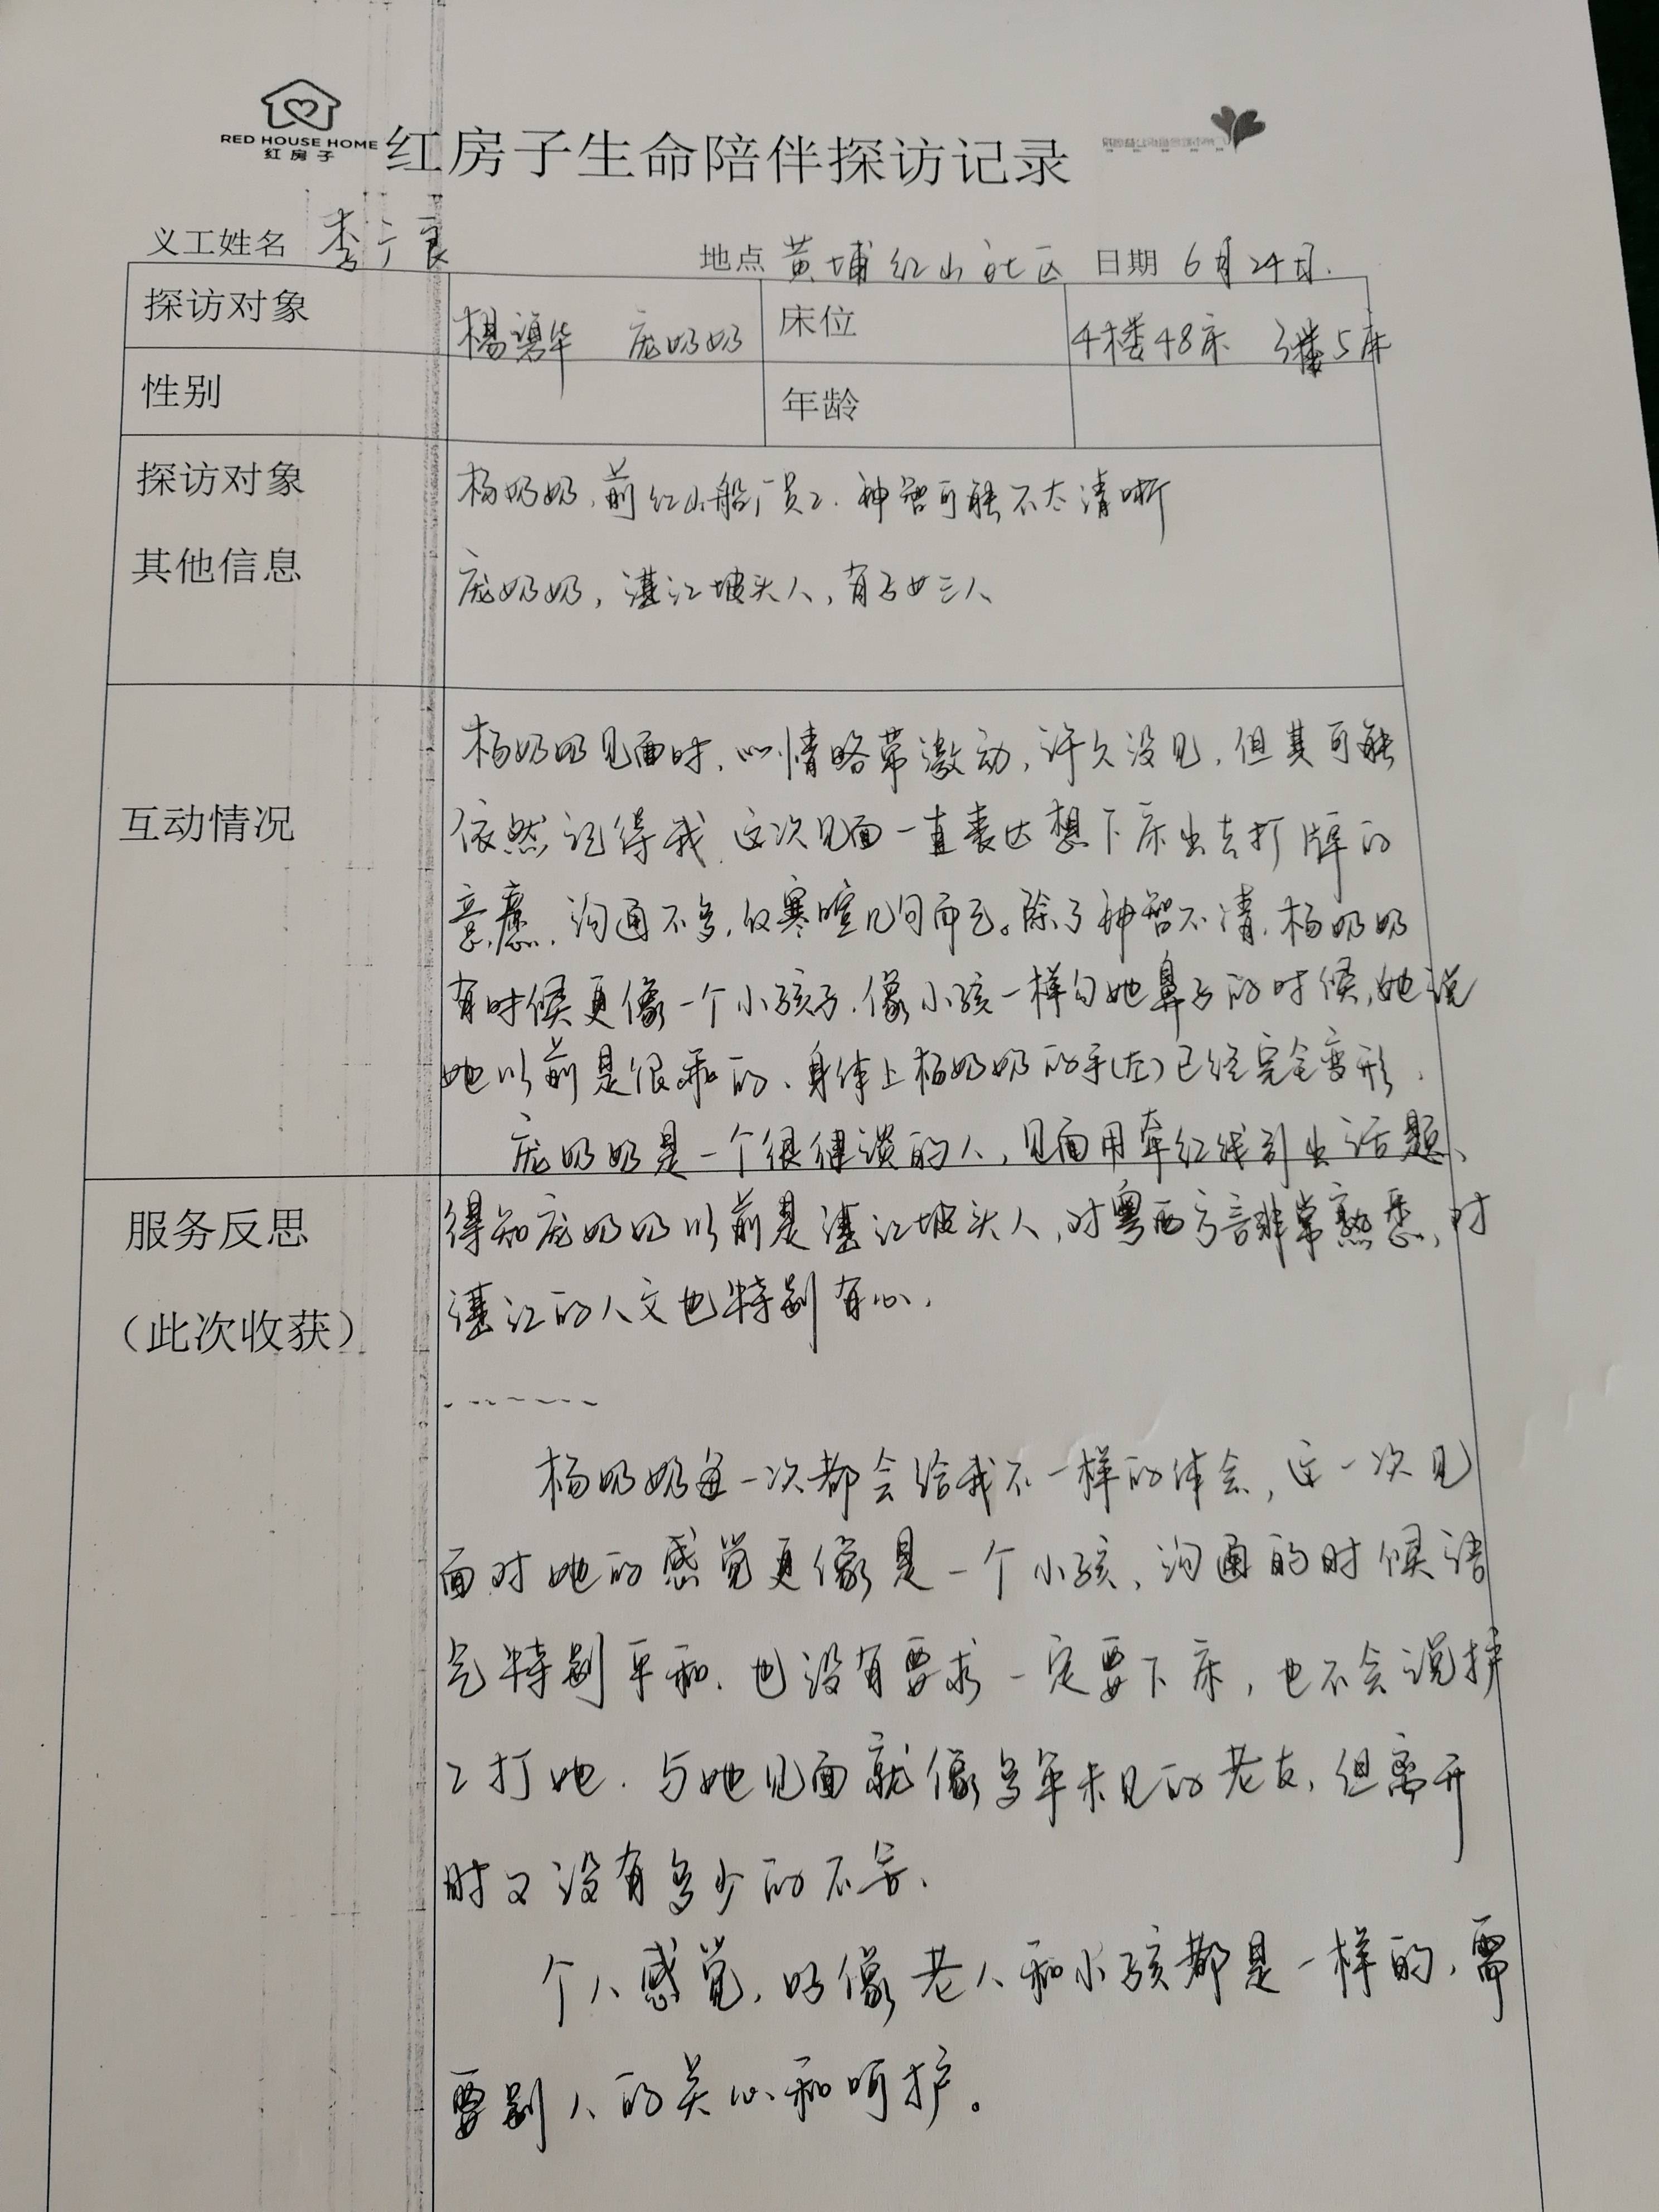 RED HOUSE HOME
红房子
红房子生命陪伴探访记录
义工姓名 李广良 地点 黄埔红山社区 日期 6月24日.
探访对象 杨 华 庞奶奶 床位 4楼48床 3楼5床
性别 年龄
探访对象 杨奶奶、前红山船厂员工、神智可能不太清晰
其他信息 庞奶奶, 湛江坡头人, 有子女三人、
杨奶奶见面时, 心情略带激动, 许久没见, 但其可能
互动情况 依然记得我、这次见面一直表达想下床出去打牌的
意愿、沟通不多, 仅寒暄几句而已。除了神智不清, 杨奶奶
有时候更像一个小孩子. 像小孩一样勾她鼻子的时候, 她说
她以前是很乖的、身体上杨奶奶的手(左)已经完全变形.
庞奶奶是一个很健谈的人, 见面用牵红线引出话题、
服务反思 得知庞奶奶以前是湛江坡头人, 对粤西方言非常熟悉、对
(此次收获) 湛江的人文也特别有心.
-------
杨奶奶每一次都会给我不一样的体会, 这一次见
面对她的感觉更像是一个小孩、沟通的时候语
气特别平和. 也没有要求一定要下床, 也不会说护
工打她. 与她见面就像多年未见的老友, 但离开
时又没有多少的不舍、
个人感觉, 好像老人和小孩都是一样的, 需
要别人的关心和呵护。